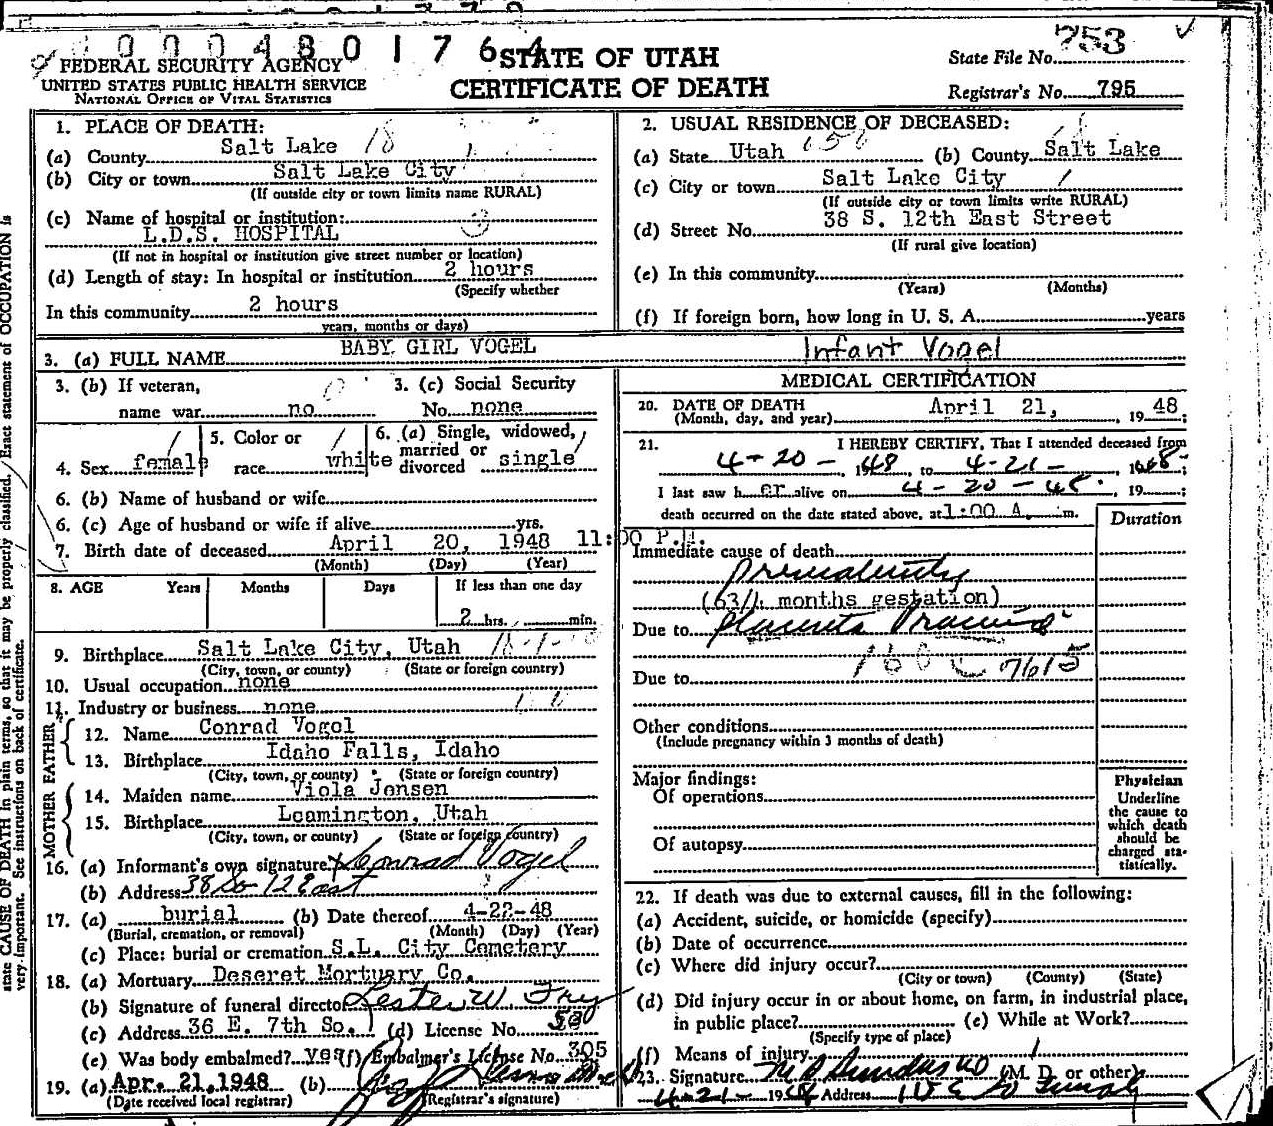 0 0 0 0 4 8 0 1 7 6 4
STATE OF UTAH
CERTIFICATE OF DEATH
FEDERAL SECURITY AGENCY
UNITED STATES PUBLIC HEALTH SERVICE
NATIONAL OFFICE OF VITAL STATISTICS
State File No. 753
Registrar's No. 795
1. PLACE OF DEATH:
(a) County Salt Lake 18
(b) City or town Salt Lake City
(If outside city or town limits name RURAL)
(c) Name of hospital or institution:
L.D.S. HOSPITAL
(If not in hospital or institution give street number or location)
(d) Length of stay: In hospital or institution 2 hours
(Specify whether
In this community 2 hours
years, months or days)
2. USUAL RESIDENCE OF DECEASED:
(a) State Utah (b) County Salt Lake
(c) City or town Salt Lake City
(If outside city or town limits write RURAL)
(d) Street No. 38 S. 12th East Street
(If rural give location)
(e) In this community
(Years) (Months)
(f) If foreign born, how long in U. S. A. years
3. (a) FULL NAME BABY GIRL VOGEL Infant Vogel
3. (b) If veteran,
name war no
3. (c) Social Security
No. none
4. Sex female
5. Color or
race white
6. (a) Single, widowed,
married or
divorced single
6. (b) Name of husband or wife
6. (c) Age of husband or wife if alive yrs.
7. Birth date of deceased April 20, 1948 11:00 P.M.
(Month) (Day) (Year)
8. AGE Years Months Days If less than one day
2 hrs. min.
9. Birthplace Salt Lake City, Utah
(City, town, or county) (State or foreign country)
10. Usual occupation none
11. Industry or business none
FATHER
12. Name Conrad Vogel
13. Birthplace Idaho Falls, Idaho
(City, town, or county) (State or foreign country)
MOTHER
14. Maiden name Viola Jensen
15. Birthplace Leamington, Utah
(City, town, or county) (State or foreign country)
16. (a) Informant's own signature x Conrad Vogel
(b) Address 38 So 12 East
17. (a) burial (b) Date thereof 4-22-48
(Burial, cremation, or removal) (Month) (Day) (Year)
(c) Place: burial or cremation S.L. City Cemetery
18. (a) Mortuary Deseret Mortuary Co.
(b) Signature of funeral director Lester W. Fry
(c) Address 36 E. 7th So. (d) License No.
(e) Was body embalmed? yes (f) Embalmer's License No. 305
19. (a) Apr. 21, 1948 (b)
(Date received local registrar) (Registrar's signature)
MEDICAL CERTIFICATION
20. DATE OF DEATH April 21, 19 48;
(Month, day, and year)
21. I HEREBY CERTIFY, That I attended deceased from
4-20-, 1948, to 4-21-, 1948;
I last saw h er alive on 4-20-48. 19 ;
death occurred on the date stated above, at 1:00 A. m.
Duration
Immediate cause of death
Prematurity
(6 3/4 months gestation)
Due to Placenta Praevia
7615
Due to
Other conditions
(Include pregnancy within 3 months of death)
Major findings:
Of operations
Of autopsy
Physician
Underline
the cause to
which death
should be
charged sta-
tistically.
22. If death was due to external causes, fill in the following:
(a) Accident, suicide, or homicide (specify)
(b) Date of occurrence
(c) Where did injury occur?
(City or town) (County) (State)
(d) Did injury occur in or about home, on farm, in industrial place,
in public place? (e) While at Work?
(Specify type of place)
(f) Means of injury
23. Signature (M. D. or other)
4-21- 1948 Address
state CAUSE OF DEATH in plain terms, so that it may be properly classified. Exact statement of OCCUPATION is
very important. See instructions on back of certificate.